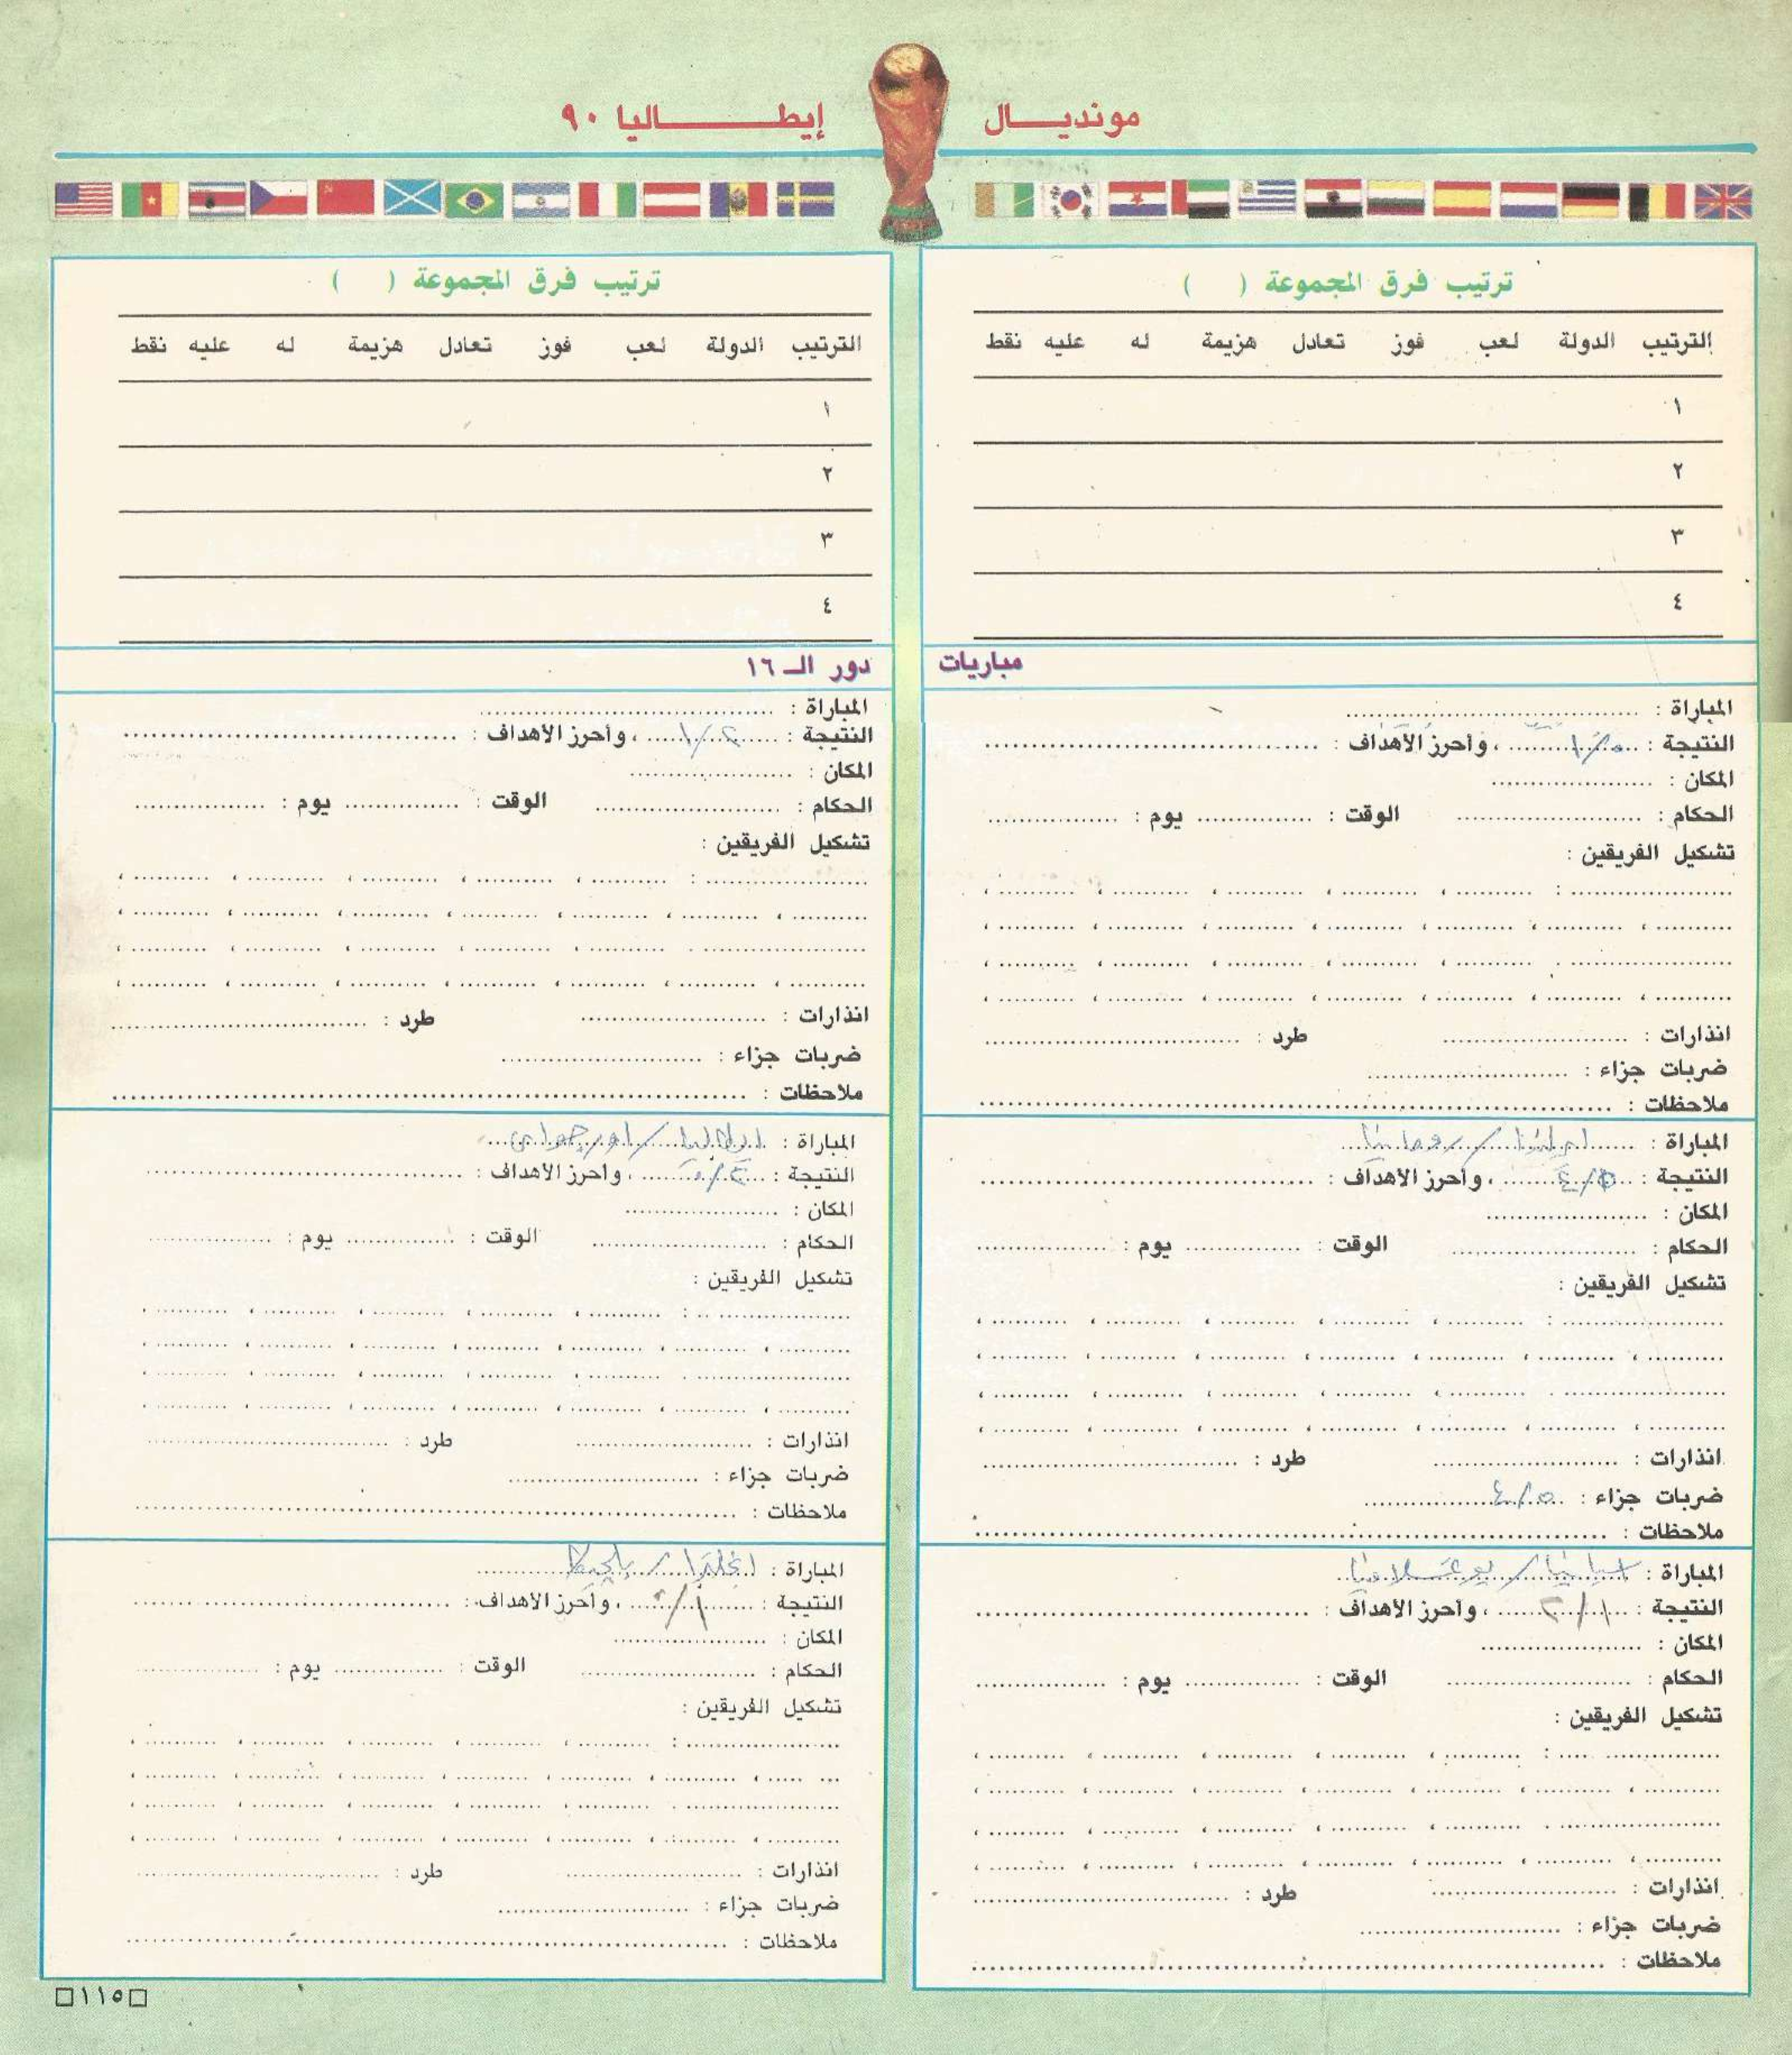 مونديـــال إيطـــــــاليا ٩٠
ترتيب فرق المجموعة ( )
الترتيب الدولة لعب فوز تعادل هزيمة له عليه نقط
١
٢
٣
٤
ترتيب فرق المجموعة ( )
الترتيب الدولة لعب فوز تعادل هزيمة له عليه نقط
١
٢
٣
٤
مباريات دور الـ ١٦
المباراة :
النتيجة : ٠/١ ، وأحرز الأهداف :
المكان :
الحكام : الوقت : يوم :
تشكيل الفريقين :
انذارات : طرد :
ضربات جزاء :
ملاحظات :
المباراة : / رومانيا
النتيجة : ٥/٤ ، وأحرز الأهداف :
المكان :
الحكام : الوقت : يوم :
تشكيل الفريقين :
انذارات : طرد :
ضربات جزاء : ٥/٤
ملاحظات :
المباراة : اسبانيا / يوغسلافيا
النتيجة : ١/٢ ، وأحرز الأهداف :
المكان :
الحكام : الوقت : يوم :
تشكيل الفريقين :
انذارات : طرد :
ضربات جزاء :
ملاحظات :
المباراة :
النتيجة : ٢/١ ، وأحرز الأهداف :
المكان :
الحكام : الوقت : يوم :
تشكيل الفريقين :
انذارات : طرد :
ضربات جزاء :
ملاحظات :
المباراة : ايطاليا / اورجواى
النتيجة : ٢/٠ ، وأحرز الأهداف :
المكان :
الحكام : الوقت : يوم :
تشكيل الفريقين :
انذارات : طرد :
ضربات جزاء :
ملاحظات :
المباراة : انجلترا / بلجيكا
النتيجة : ١/٠ ، وأحرز الأهداف :
المكان :
الحكام : الوقت : يوم :
تشكيل الفريقين :
انذارات : طرد :
ضربات جزاء :
ملاحظات :
١١٥